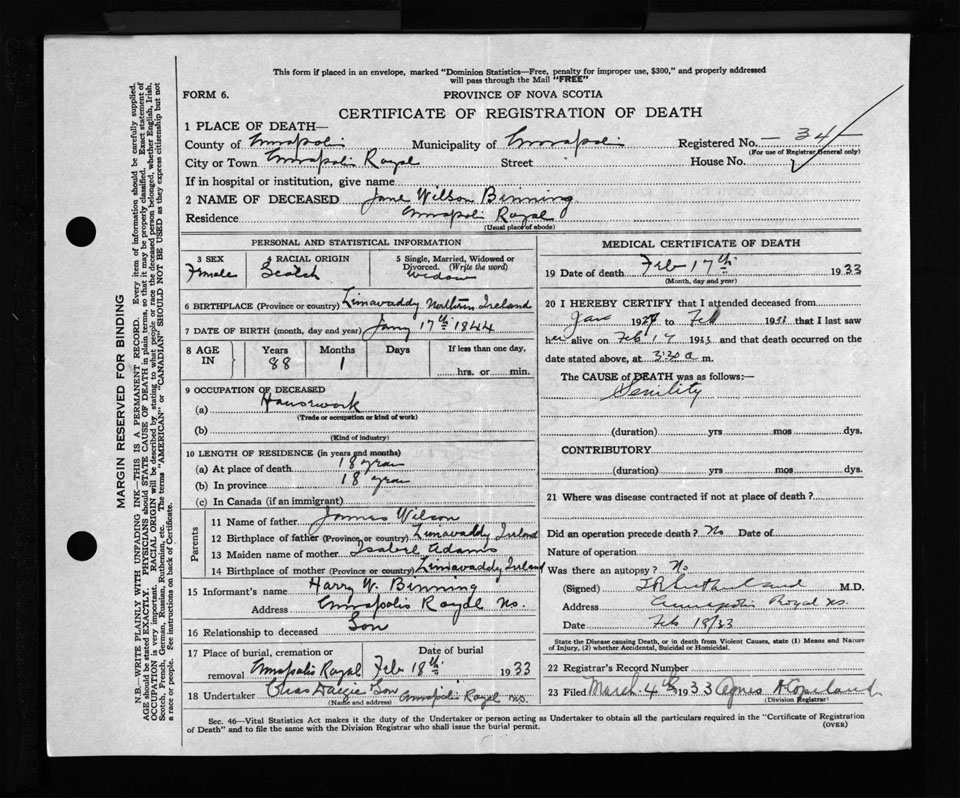 This form if placed in an envelope, marked "Dominion Statistics—Free, penalty for improper use, $300," and properly addressed
will pass through the Mail "FREE"
FORM 6.
PROVINCE OF NOVA SCOTIA
CERTIFICATE OF REGISTRATION OF DEATH
1 PLACE OF DEATH—
County of Annapolis Municipality of Annapolis Registered No. 34
(For use of Registrar General only)
City or Town Annapolis Royal Street House No.
If in hospital or institution, give name
2 NAME OF DECEASED Jane Wilson Binning
Residence Annapolis Royal
(Usual place of abode)
PERSONAL AND STATISTICAL INFORMATION
3 SEX 4 RACIAL ORIGIN 5 Single, Married, Widowed or
Divorced. (Write the word)
Female Scotch Widow
6 BIRTHPLACE (Province or country) Limavaddy Northern Ireland
7 DATE OF BIRTH (month, day and year) Jany 17th 1844
8 AGE IN Years Months Days If less than one day.
88 1 hrs. or min.
9 OCCUPATION OF DECEASED
(a) Housework
(Trade or occupation or kind of work)
(b)
(Kind of industry)
10 LENGTH OF RESIDENCE (in years and months)
(a) At place of death 18 years
(b) In province 18 years
(c) In Canada (if an immigrant)
Parents
11 Name of father James Wilson
12 Birthplace of father (Province or country) Limavaddy Ireland
13 Maiden name of mother Isabel Adams
14 Birthplace of mother (Province or country) Limavaddy Ireland
15 Informant's name Harry W. Binning
Address Annapolis Royal NS.
16 Relationship to deceased Son
17 Place of burial, cremation or Date of burial
removal Annapolis Royal Feb 18th 1933
18 Undertaker Chas Dargie Son Annapolis Royal NS.
(Name and address)
MEDICAL CERTIFICATE OF DEATH
19 Date of death Feb 17th 1933
(Month, day and year)
20 I HEREBY CERTIFY that I attended deceased from
to Feb 1933 that I last saw
her alive on Feb 1933 and that death occurred on the
date stated above, at 3:30 a m.
The CAUSE of DEATH was as follows:—
Senility
(duration) yrs mos dys.
CONTRIBUTORY
(duration) yrs mos dys.
21 Where was disease contracted if not at place of death?
Did an operation precede death? No Date of
Nature of operation
Was there an autopsy? No
(Signed) M.D.
Address Annapolis Royal NS.
Date Feb 18/33
State the Disease causing Death, or in death from Violent Causes, state (1) Means and Nature
of Injury, (2) whether Accidental, Suicidal or Homicidal.
22 Registrar's Record Number
23 Filed March 4th 1933 Agnes Copeland
(Division Registrar)
Sec. 46—Vital Statistics Act makes it the duty of the Undertaker or person acting as Undertaker to obtain all the particulars required in the "Certificate of Registration
of Death" and to file the same with the Division Registrar who shall issue the burial permit.
(OVER)
MARGIN RESERVED FOR BINDING
N.B.—WRITE PLAINLY WITH UNFADING INK—THIS IS A PERMANENT RECORD. Every item of information should be carefully supplied.
AGE should be stated EXACTLY. PHYSICIANS should STATE CAUSE OF DEATH in plain terms, so that it may be properly classified. Exact statement of
OCCUPATION is very important. RACIAL ORIGIN will be described by stating to what people or race the deceased person belonged, whether English, Irish,
Scotch, French, German, Russian, Ruthenian, etc. The terms "AMERICAN" or "CANADIAN" SHOULD NOT BE USED as they express citizenship but not
a race or people. See instructions on back of Certificate.